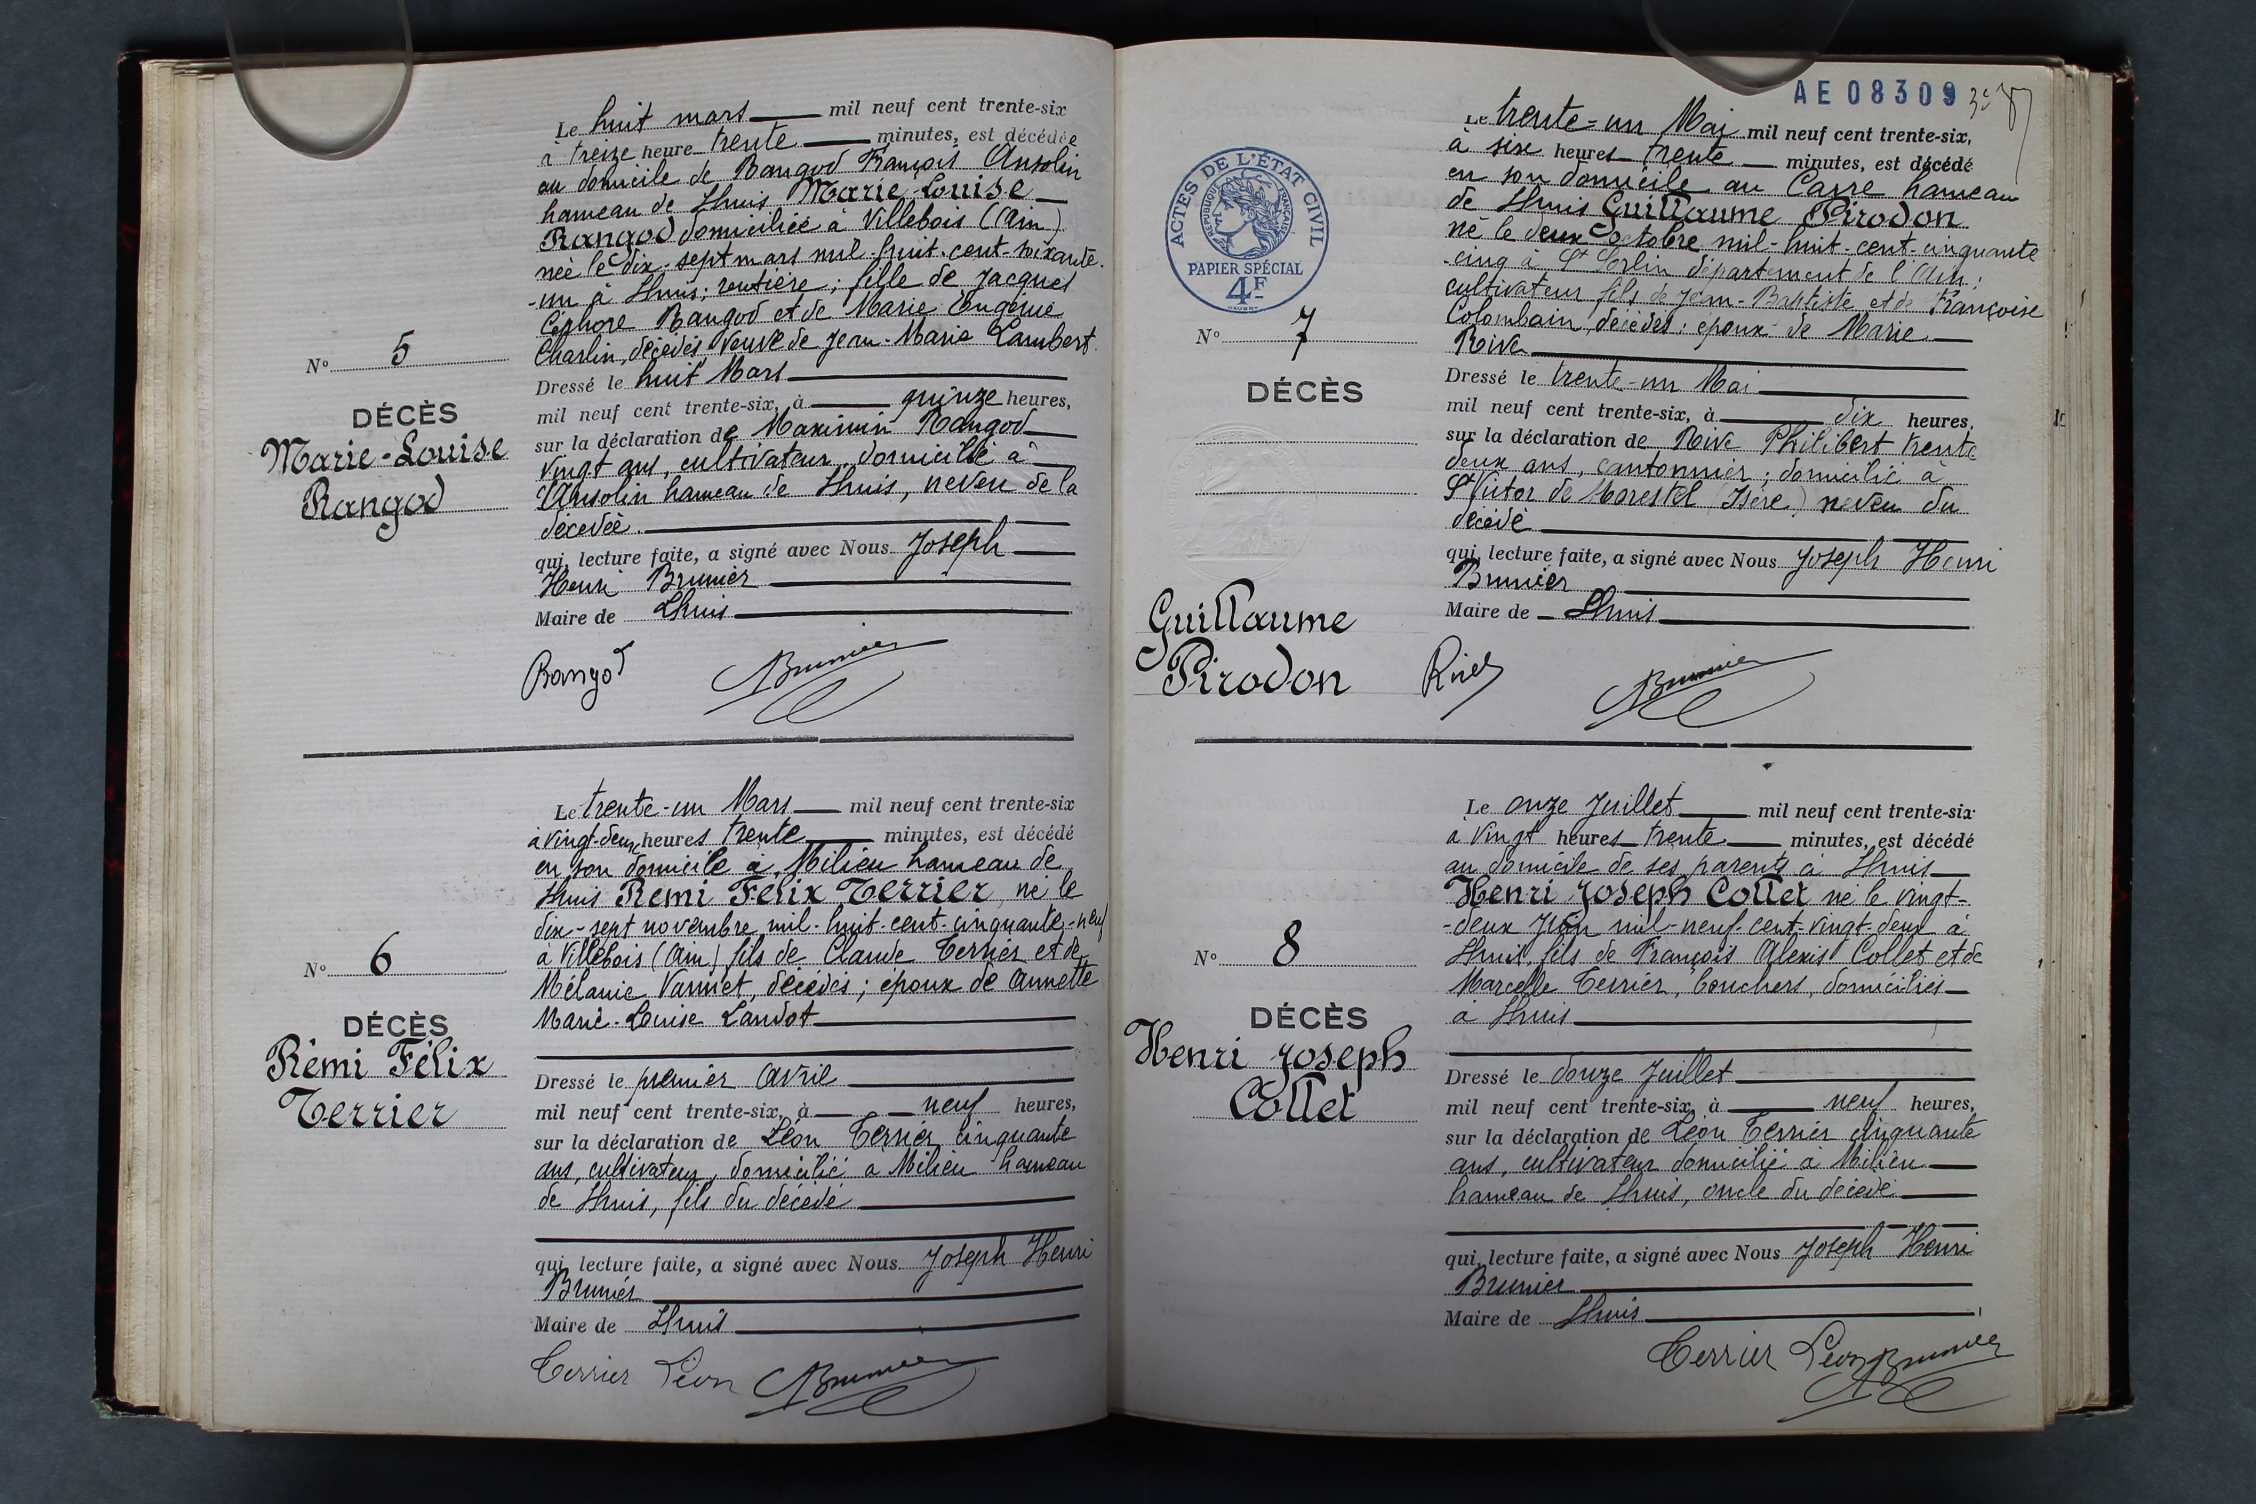 Le huit mars mil neuf cent trente-six
à treize heure trente minutes, est décédée
au domicile de Rangod François Ansolin
hameau de Lhuis Marie-Louise
Rangod domiciliée à Villebois (Ain)
née le dix-sept mars mil-huit-cent-soixante-
-un à Lhuis; rentière; fille de Jacques
Céphore Rangod et de Marie Eugénie
Charlin, décédés veuve de Jean-Marie Lambert.
Dressé le huit Mars
mil neuf cent trente-six, à quinze heures,
sur la déclaration de Maximin Rangod
vingt ans, cultivateur, domicilié à
Ansolin hameau de Lhuis, neveu de la
décédée.
qui, lecture faite, a signé avec Nous Joseph
Henri Brunier
Maire de Lhuis
Rangod Brunier
N° 5
DÉCÈS
Marie-Louise
Rangod
Le trente-un Mars mil neuf cent trente-six
à vingt-deux heures trente minutes, est décédé
en son domicile à Milieu hameau de
Lhuis Rémi Félix Terrier, né le
dix-sept novembre mil-huit-cent-cinquante-neuf
à Villebois (Ain) fils de Claude Terrier et de
Mélanie Vannet, décédés; époux de Annette
Marie-Louise Landot
Dressé le premier Avril
mil neuf cent trente-six, à neuf heures,
sur la déclaration de Léon Terrier, cinquante
ans, cultivateur, domicilié a Milieu hameau
de Lhuis, fils du décédé
qui, lecture faite, a signé avec Nous Joseph Henri
Brunier
Maire de Lhuis
Terrier Léon Brunier
N° 6
DÉCÈS
Rémi Félix
Terrier
AE 08309
ACTES DE L'ÉTAT CIVIL
RÉPUBLIQUE FRANÇAISE
PAPIER SPÉCIAL
4F
Le trente-un Mai mil neuf cent trente-six,
à six heures trente minutes, est décédé
en son domicile au Carre hameau
de Lhuis Guillaume Pirodon
né le deux octobre mil-huit-cent-cinquante
-cinq à St Sorlin département de l'Ain;
cultivateur fils de Jean-Baptiste et de Françoise
Colombain, décédés; époux de Marie
Rive
Dressé le trente-un Mai
mil neuf cent trente-six, à dix heures,
sur la déclaration de Rive Philibert trente
deux ans, cantonnier; domicilié à
St Victor de Morestel (Isère) neveu du
décédé
qui, lecture faite, a signé avec Nous Joseph Henri
Brunier
Maire de Lhuis
Rive Brunier
N° 7
DÉCÈS
Guillaume
Pirodon
Le onze Juillet mil neuf cent trente-six
à vingt heures trente minutes, est décédé
au domicile de ses parents à Lhuis
Henri Joseph Collet né le vingt-
-deux juin mil-neuf-cent-vingt-deux à
Lhuis, fils de François Alexis Collet et de
Marcelle Terrier, bouchers, domiciliés
à Lhuis
Dressé le douze Juillet
mil neuf cent trente-six, à neuf heures,
sur la déclaration de Léon Terrier cinquante
ans, cultivateur domicilié à Milieu
hameau de Lhuis, oncle du décédé
qui, lecture faite, a signé avec Nous Joseph Henri
Brunier
Maire de Lhuis
Terrier Léon Brunier
N° 8
DÉCÈS
Henri Joseph
Collet